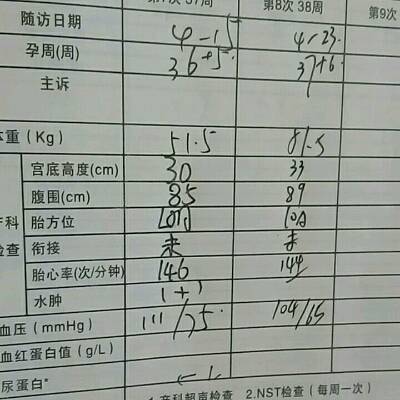 第7次 37周 第8次 38周 第9次
随访日期 4-15 4-23.
孕周(周) 36+5. 37+6.
主诉
体重(Kg) 51.5 81.5
宫底高度(cm) 30 33
腹围(cm) 85 89
产科 胎方位 LOA LOA
检查 衔接 未 未
胎心率(次/分钟) 146 144
水肿
血压(mmHg) 111/75. 104/65
血红蛋白值(g/L)
尿蛋白*
1.产科超声检查 2.NST检查(每周一次)